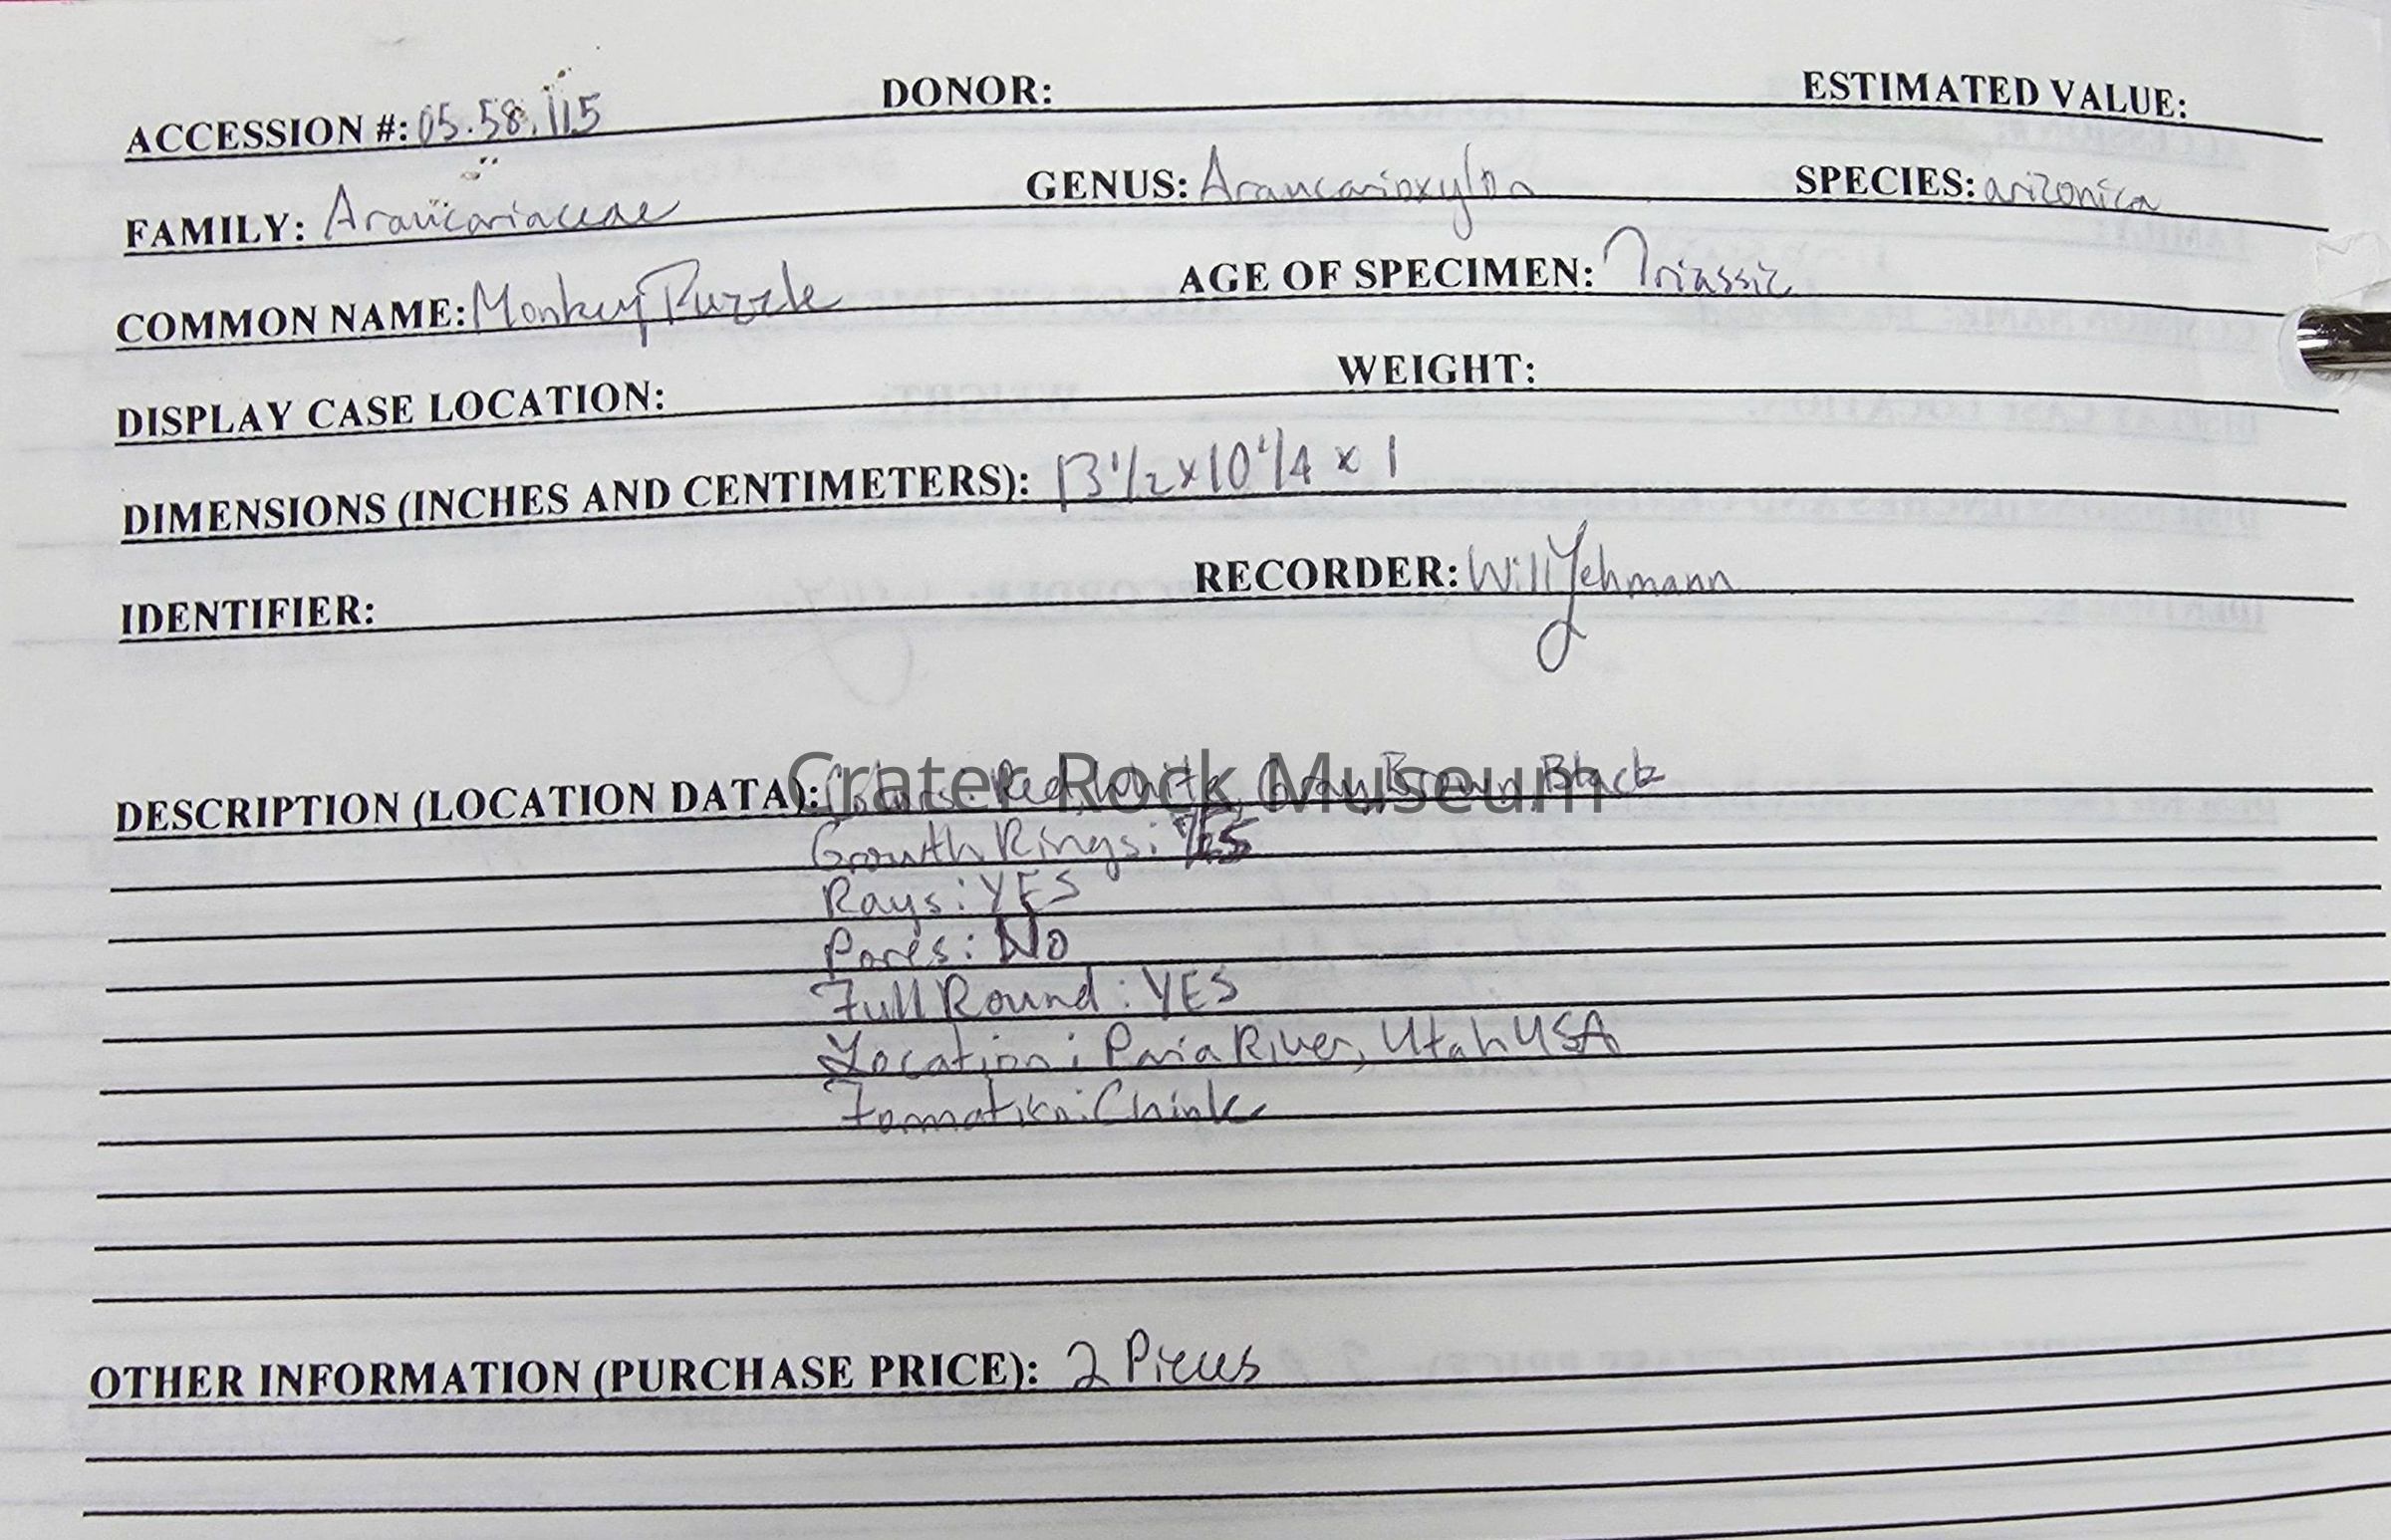 ACCESSION #: 05.58.115 DONOR: ESTIMATED VALUE:
FAMILY: Araucariaceae GENUS: Araucarioxylon SPECIES: arizonica
COMMON NAME: Monkey Puzzle AGE OF SPECIMEN: Triassic
DISPLAY CASE LOCATION: WEIGHT:
DIMENSIONS (INCHES AND CENTIMETERS): 13 1/2 x 10 1/4 x 1
IDENTIFIER: RECORDER: Will Lehmann
Crater Rock Museum
DESCRIPTION (LOCATION DATA): Colors: Red, White, Gray, Brown, Black
Growth Rings: YES
Rays: YES
Pores: No
Full Round: YES
Location: Paria River, Utah USA
Formation: Chinle
OTHER INFORMATION (PURCHASE PRICE): 2 Pieces